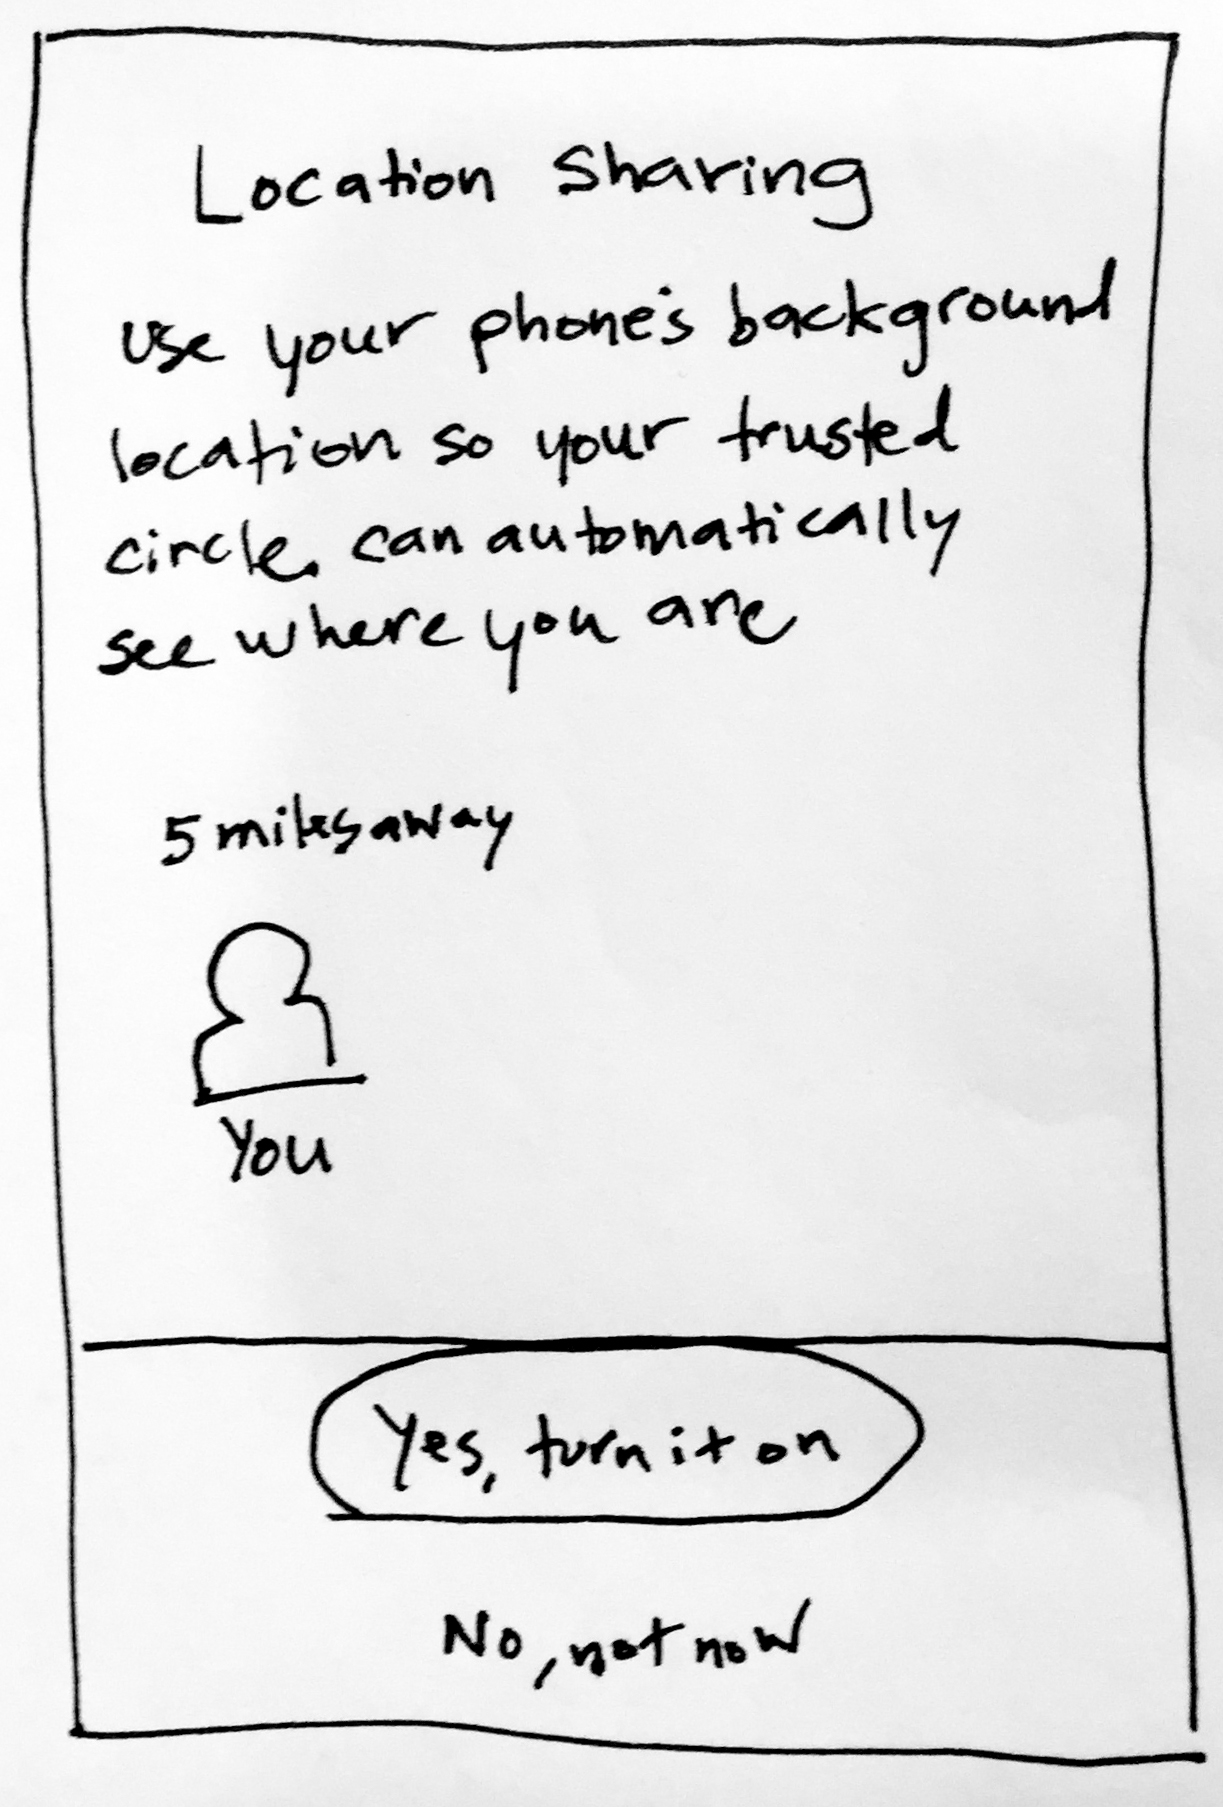 Location Sharing
Use your phone's background
location so your trusted
circle can automatically
see where you are
5 miles away
You
Yes, turn it on
No, not now